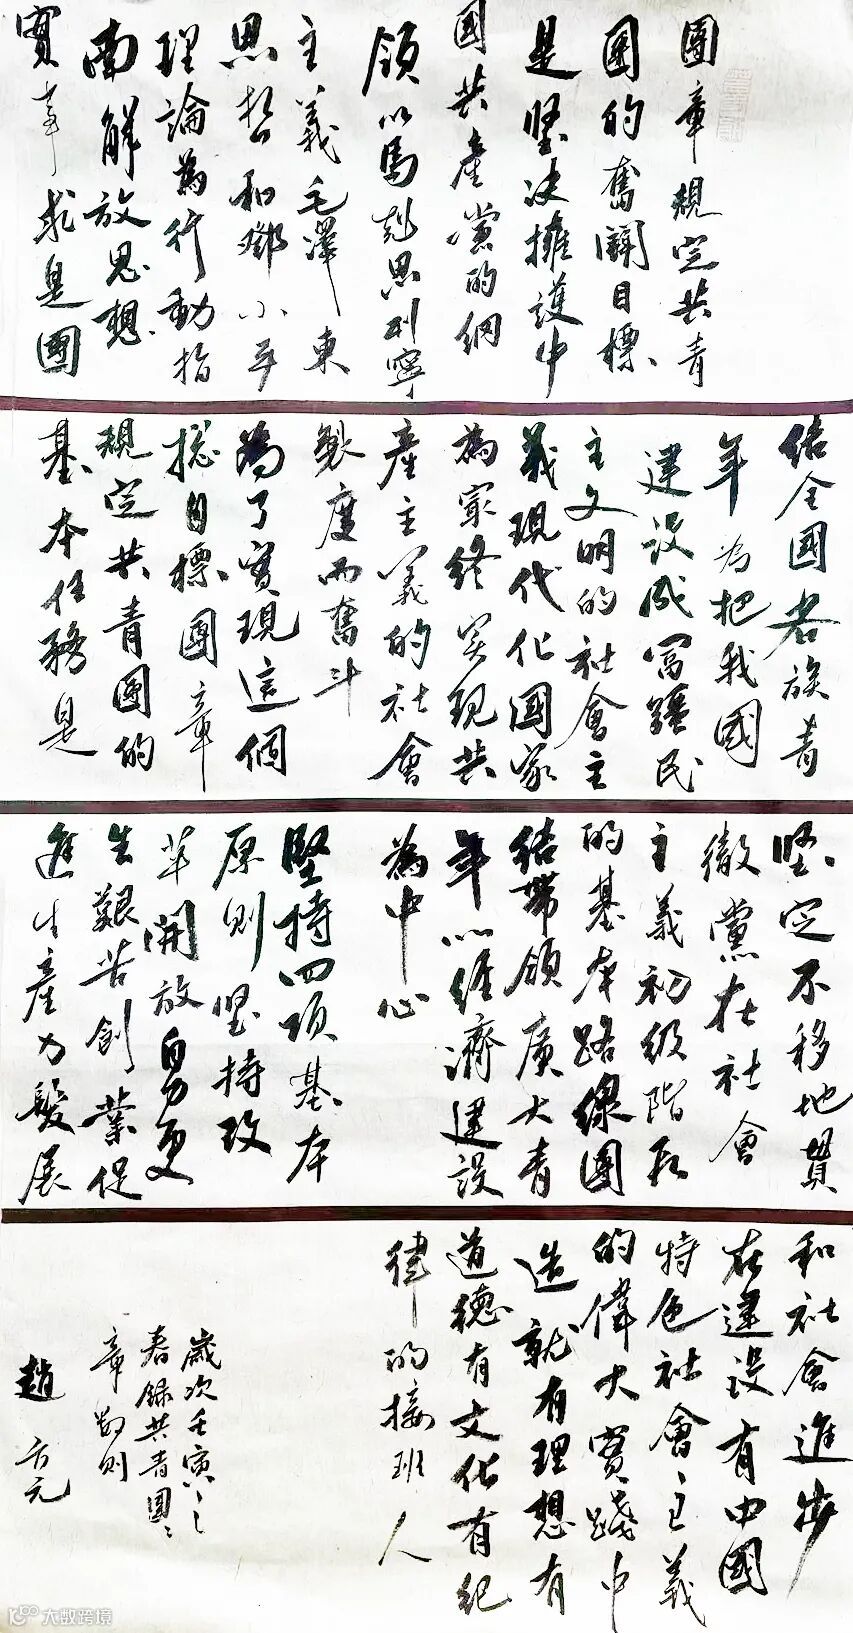 團章規定共青
團的奮鬭目標
是堅决擁護中
國共產黨的綱
領以馬克思列寧
主義毛澤東
思想和鄧小平
理論為行動指
南解放思想
實事求是團
結全國各族青
年為把我國
建设成富強民
主文明的社會主
義現代化國家
為最終实現共
產主義的社會
製度而奮斗
為了實現這個
總目標團章
規定共青團的
基本任務是
堅定不移地貫
徹黨在社會
主義初级階段
的基本路線團
結帶領廣大青
年以经濟建設
為中心
堅持四項基本
原则堅持改
革開放自力更
生艱苦創業促
進生產力發展
和社會進步
在建设有中國
特色社會主義
的偉大實踐中
造就有理想有
道德有文化有纪
律的接班人
歲次壬寅之
春録共青團
章 则
趙 元
大数跨境